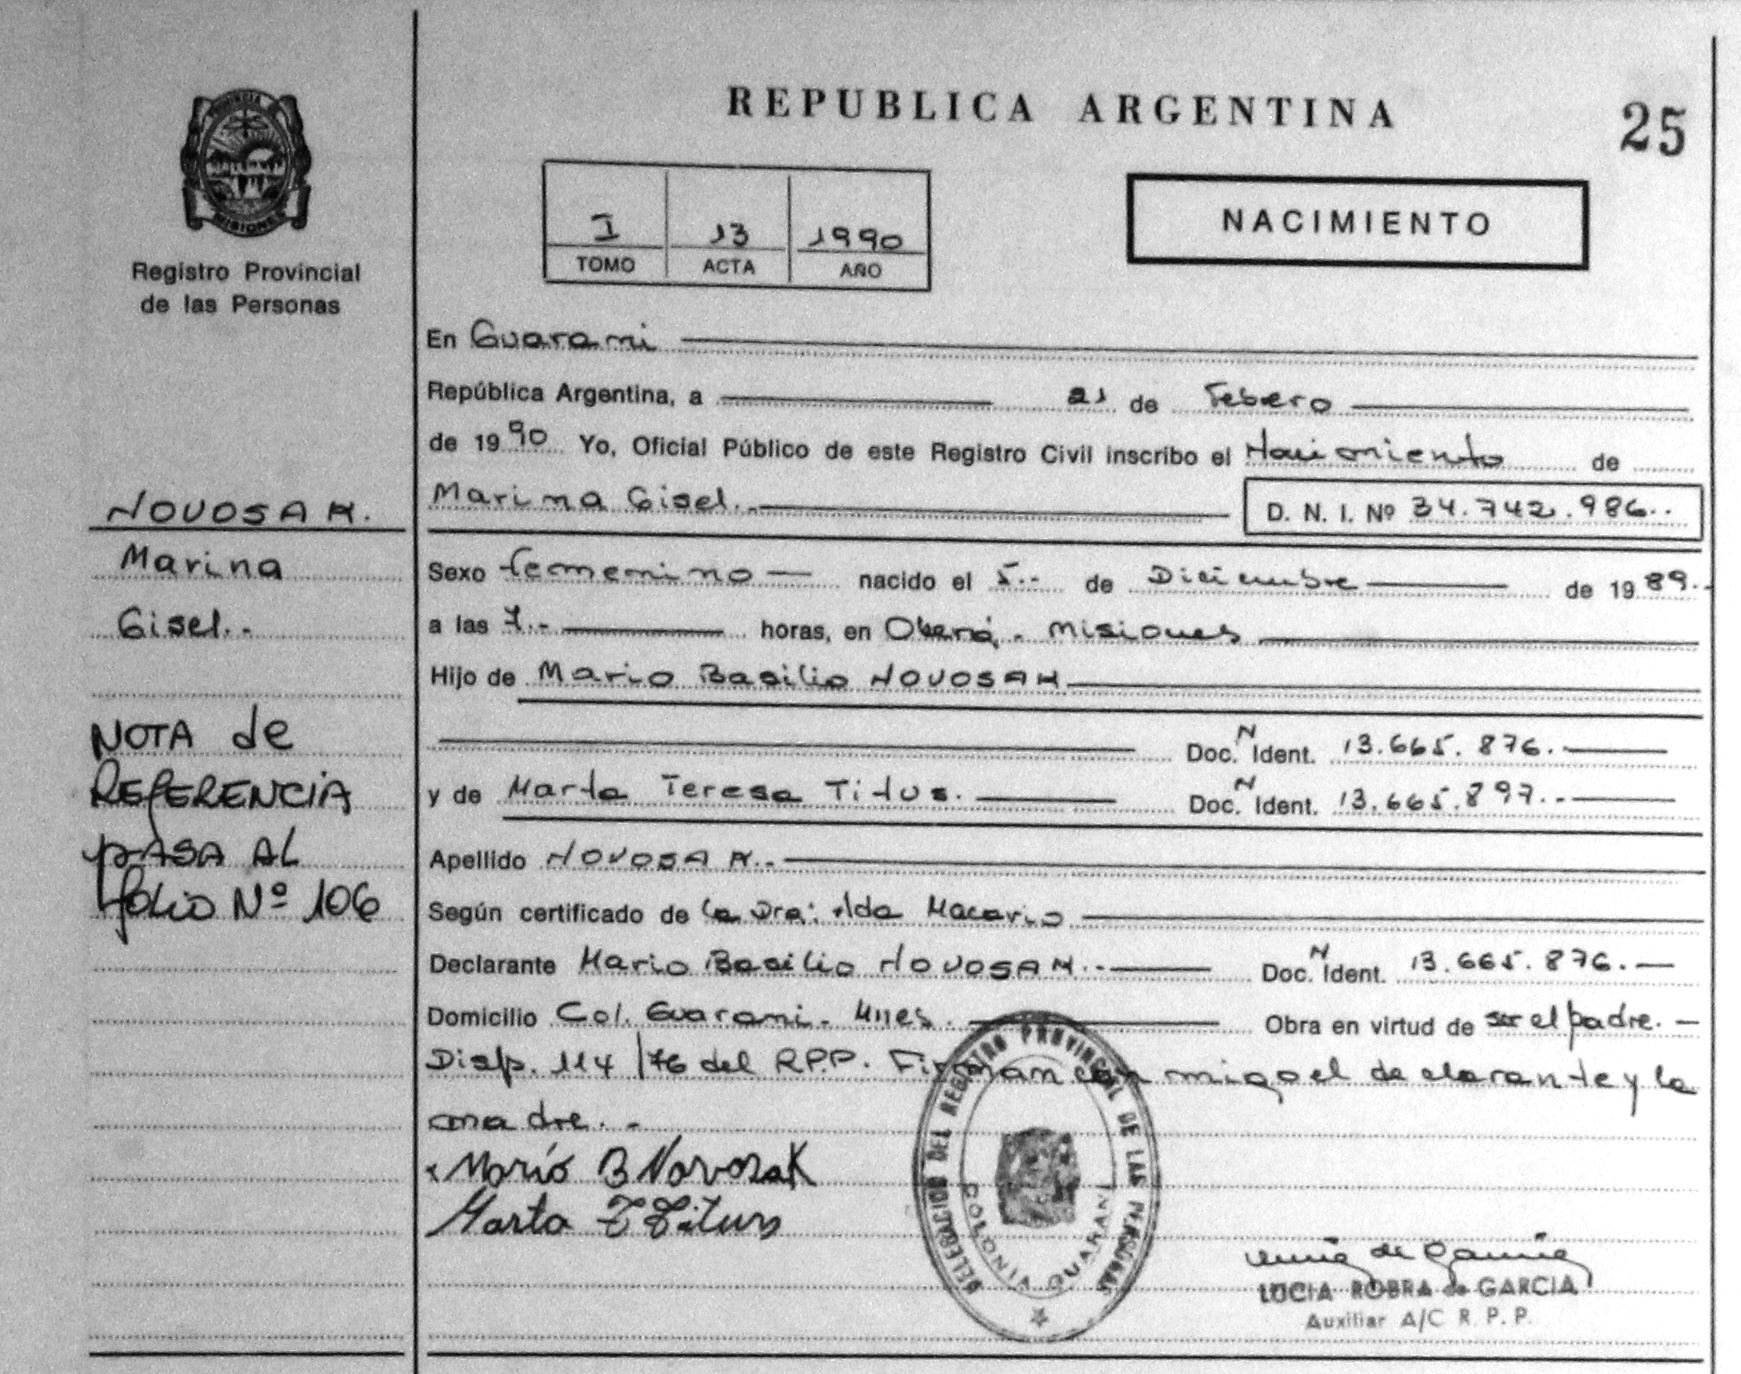 REPUBLICA ARGENTINA
25
PROVINCIA DE
MISIONES
Registro Provincial
de las Personas
I 13 1990
TOMO ACTA AÑO
NACIMIENTO
En Guarani
República Argentina, a 21 de Febrero
de 1990 Yo, Oficial Público de este Registro Civil inscribo el Nacimiento de
Marina Gisel.- D. N. I. Nº 34.742.986..
Sexo femenino nacido el 5.- de Diciembre de 1989.-
a las 7.- horas, en Oberá. Misiones
Hijo de Mario Basilio NOVOSAK
Doc. N Ident. 13.665.876.
y de Marta Teresa Titus. Doc. N Ident. 13.665.897.-
Apellido NOVOSAK.-
Según certificado de la Dra: Ada Macario
Declarante Mario Basilio NOVOSAK.- Doc. N Ident. 13.665.876.
Domicilio Col. Guarani. Mnes. Obra en virtud de ser el padre.
Disp. 114/76 del R.P.P. Firman con migo el declarante y la
madre.-
Mario B Novosak
Marta T Titus
NOVOSAK.
Marina
Gisel.-
NOTA de
REFERENCIA
PASA AL
folio Nº 106
DELEGACION DEL REGISTRO PROVINCIAL DE LAS PERSONAS
COLONIA GUARANI
LUCIA ROBRA de GARCIA
Auxiliar A/C R. P. P.